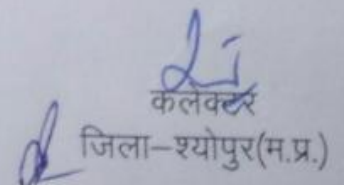 कलेक्टर
जिला–श्योपुर(म.प्र.)